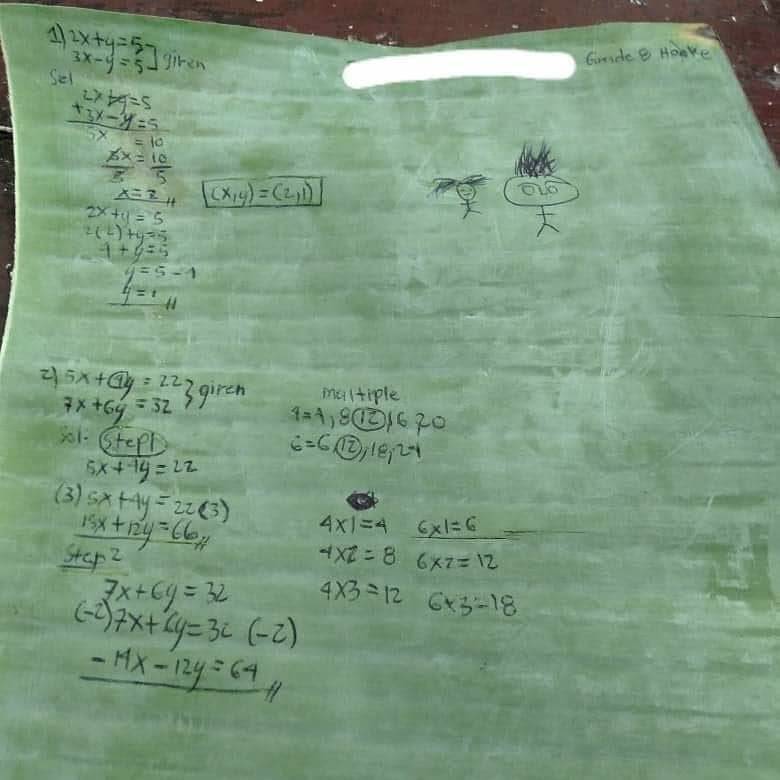 1) 2x+y=5
3x-y=5 given
Grade 8 Hooke
Sol
2x+y=5
+3x-y=5
5x = 10
5x = 10
5 5
x=2
(x,y)=(2,1)
2x+y=5
2(2)+y=5
4+y=5
y=5-4
y=1
2) 5x+4y=22
7x+6y=32 given
Sol. Step1
5x+4y=22
(3)5x+4y=22(3)
15x+12y=66
Step2
7x+6y=32
(-2)7x+6y=32(-2)
-14x-12y=64
multiple
4=4,8,12,16,20
6=6,12,18,24
4x1=4 6x1=6
4x2=8 6x2=12
4x3=12 6x3=18